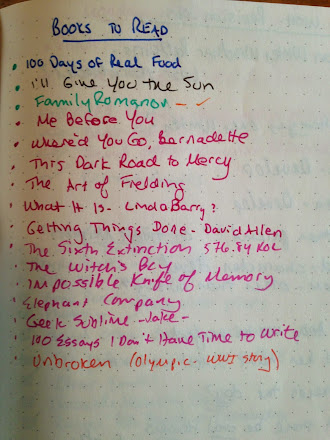 Books to Read
• 100 Days of Real Food
• I'll Give You the Sun
• Family Romanov - ✓
• Me Before You
• Where'd You Go, Bernadette
• This Dark Road to Mercy
• The Art of Fielding
• What It Is - Linda Barry?
• Getting Things Done - David Allen
• The Sixth Extinction 576.84 KOL
• The Witch's Boy
• Impossible Knife of Memory
• Elephant Company
• Geek Sublime - Jake -
• 100 Essays I Don't Have Time to Write
• Unbroken (Olympic - WWI story)